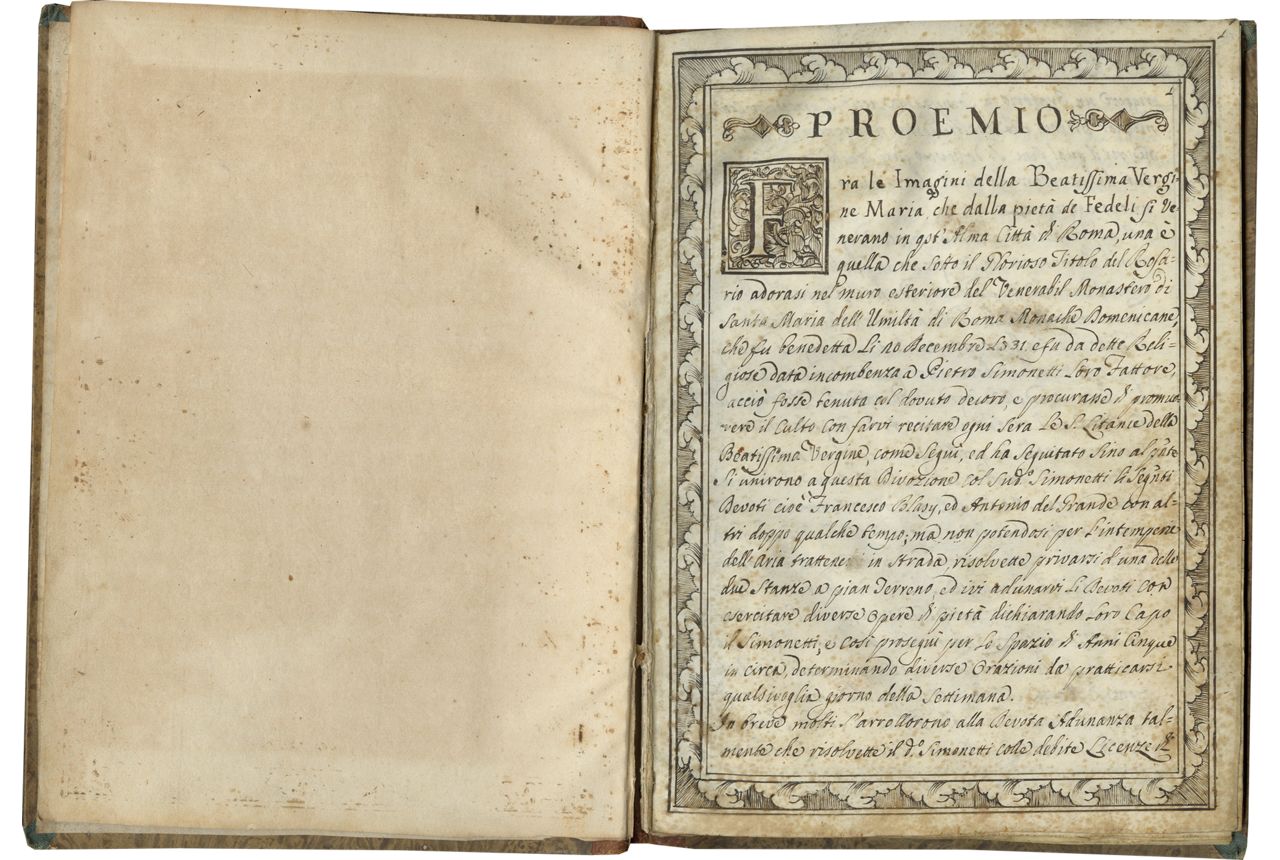 PROEMIO
Fra le Imagini della Beatissima Vergi-
ne Maria, che dalla pietà de Fedeli si Ve-
nerano in qst' Alma Città di Roma, una è
quella che sotto il Glorioso Titolo del Rosa-
rio adorasi nel muro esteriore del Venerabil Monastero di
Santa Maria dell' Umiltà di Roma Monache Domenicane,
che fu benedetta li Decembre e fu da dette Reli-
giose data incombenza a Pietro Simonetti loro Fattore,
acciò fosse tenuta col dovuto decoro, e procurasse di promuo
vere il Culto con farvi recitare ogni sera le S. Litanie della
Beatissima Vergine, come seguì, ed ha seguitato sino al pnte
Si unirono a questa Divozione col Sud.o Simonetti li Segnti
Devoti cioè Francesco Blasy, ed Antonio del Grande con al-
tri doppo qualche tempo; ma non potendosi per l'intemperie
dell' Aria in strada, risolvette privarsi d'una delle
due Stanze a pian Terreno, ed ivi adunarvi li Devoti con
esercitare diverse Opere di pietà dichiarando loro Capo
il Simonetti, e così proseguì per lo Spazio di Anni Cinque
in circa, determinando diverse Orazioni da pratticarsi
qualsivoglia giorno della Settimana.
In breve molti s'arrollorono alla Devota Adunanza tal-
mente che risolvette il d.o Simonetti colle debite Licenze di